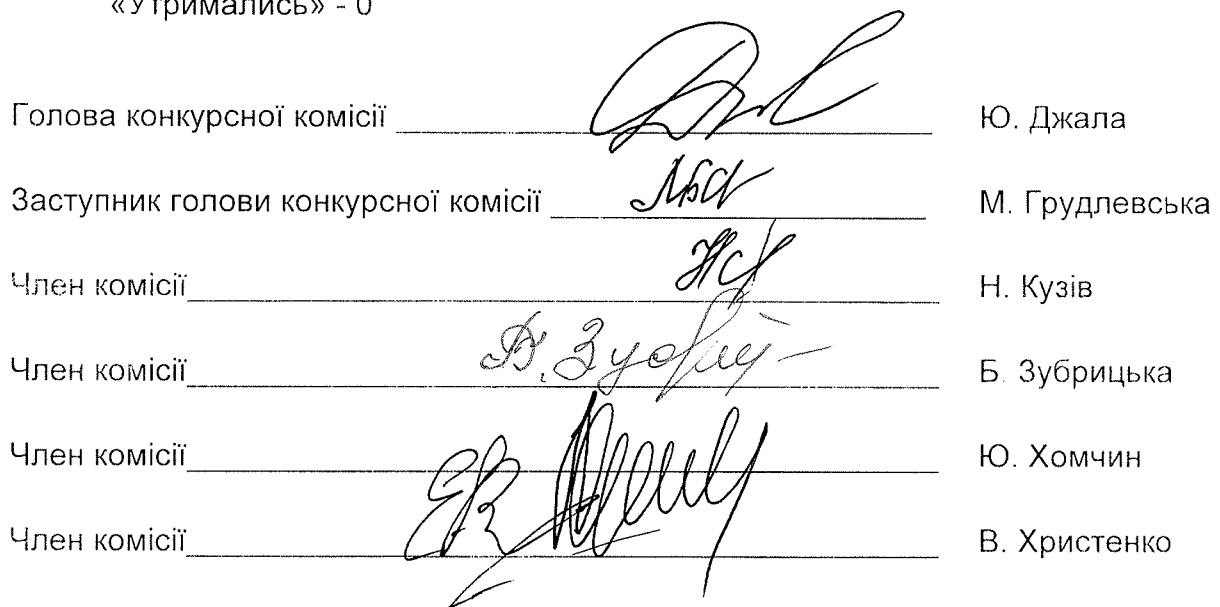 «Утримались» - 0
Голова конкурсної комісії Ю. Джала
Заступник голови конкурсної комісії М. Грудлевська
Член комісії Н. Кузів
Член комісії Б. Зубрицька
Член комісії Ю. Хомчин
Член комісії В. Христенко